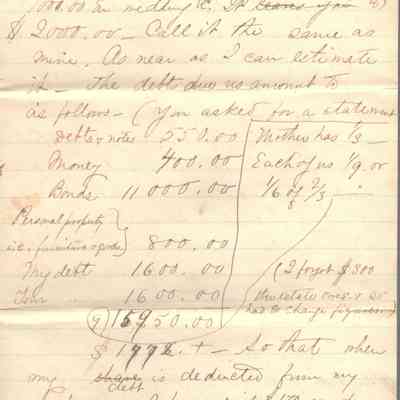 $ 2000.00 - Call it the same as
mine. As near as I can estimate
it - The debts due us amount to
as follows - (You asked for a statement
Debts & notes 250.00 Mother has 1/3 -
Money 400.00 Each of us 1/9. or
Bonds 11000.00 1/6 of 2/3 -
Personal property
i.e. furniture & goods 800.00
My debt 1600.00 (I forgot $300
1600.00 the estate owes
15950.00 has to charge
$ 1772.+ - So that when
my share debt is deducted from my